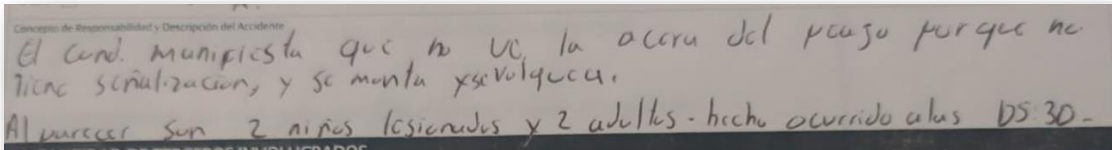 Concepto de Responsabilidad y Descripción del Accidente
El Cond. manifiesta que no ve la acera del peage porque no
Tiene señalizacion, y se monta y se volquea.
Al parecer son 2 niños lesionados y 2 adultos - hecho ocurrido a las 05:30-